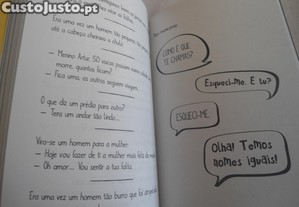 CustoJusto.pt
Era uma vez um homem tão pequeno
até a cabeça cheirava a chulé.
— Menino Artur: 50 vacas
morre, quantas ficam?
— Fica uma, as outras seguem viagem.
O que diz um prédio para outro?
— Tens um andar tão lindo...
Vira-se um homem para a mulher:
— Hoje vou fazer de ti a mulher mais feliz do
— Oh amor... Vou sentir a tua falta.
Era uma vez um homem tão burro que foi
COMO É QUE
TE CHAMAS?
Esqueci-me. E tu?
ESQUECI-ME.
Olha! Temos
nomes iguais!